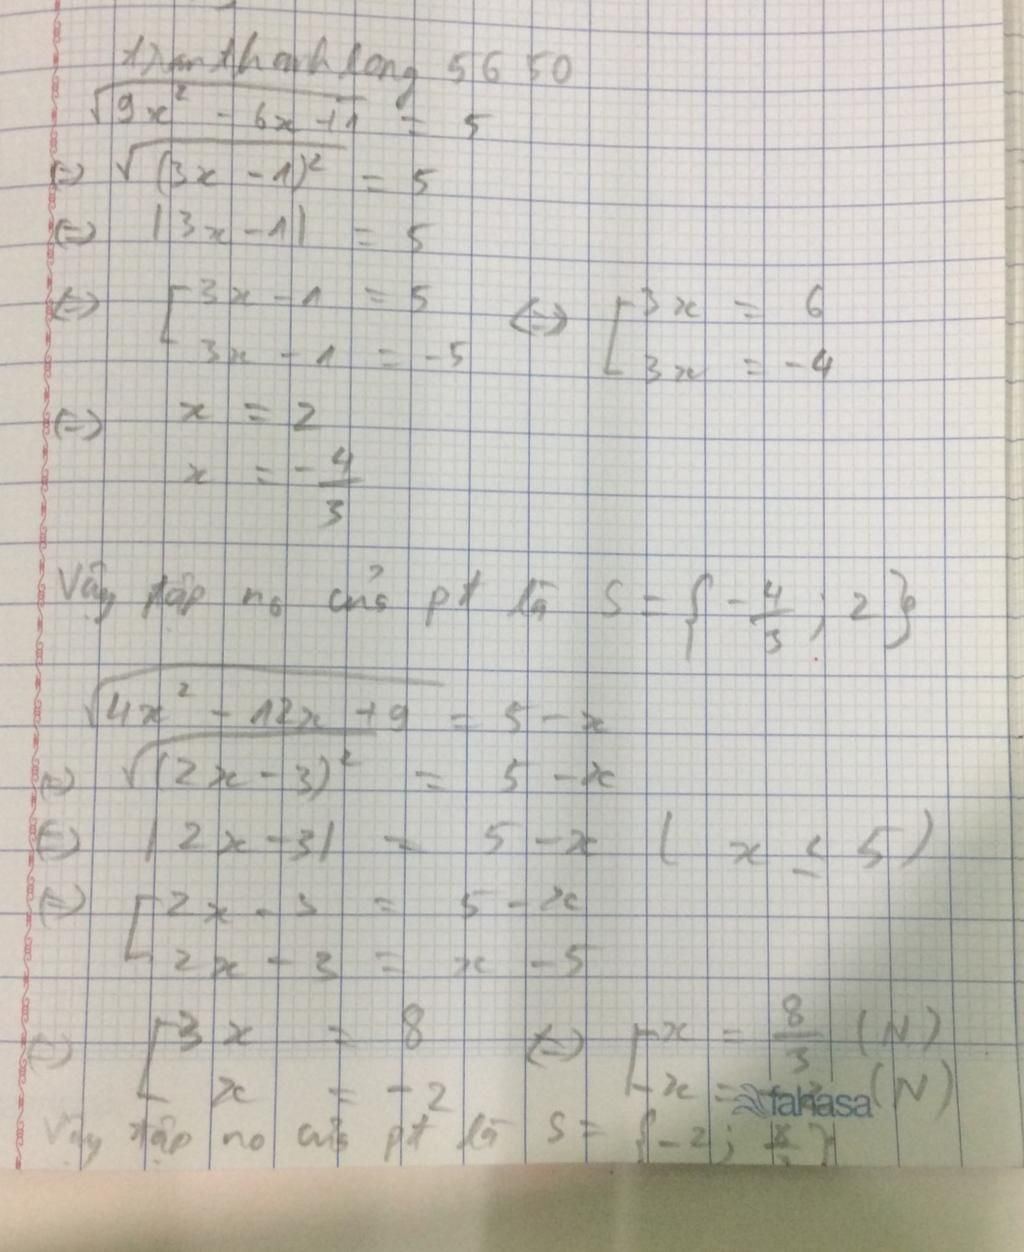 tranthanhlong 5650
√(9x² - 6x + 1) = 5
⇔ √((3x - 1)²) = 5
⇔ |3x - 1| = 5
⇔ [ 3x - 1 = 5 ⇔ [ 3x = 6
3x - 1 = -5 3x = -4
⇔ x = 2
x = -4/3
Vậy tập no của pt là S = { -4/3 ; 2 }
√(4x² - 12x + 9) = 5 - x
⇔ √((2x - 3)²) = 5 - x
⇔ |2x - 3| = 5 - x ( x ≤ 5 )
⇔ [ 2x - 3 = 5 - x
2x - 3 = x - 5
⇔ [ 3x = 8 ⇔ [ x = 8/3 (N)
x = -2 x = -2 (N)
fahasa
Vậy tập no của pt là S = { -2 ; 8/3 }